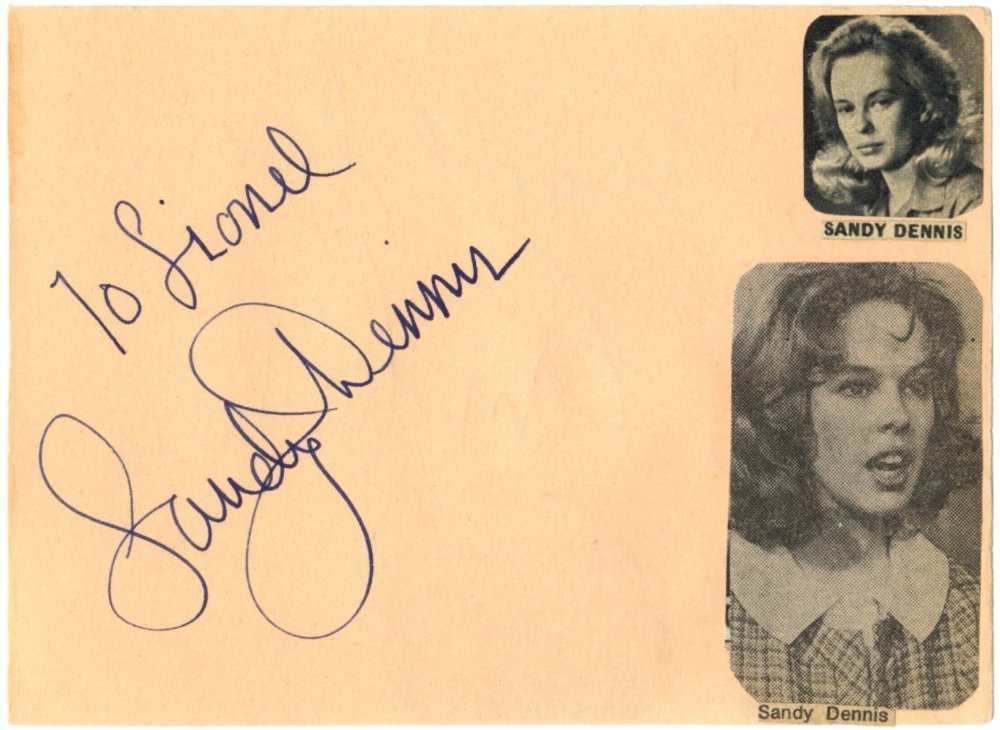 To Lionel
Sandy Dennis
SANDY DENNIS
Sandy Dennis